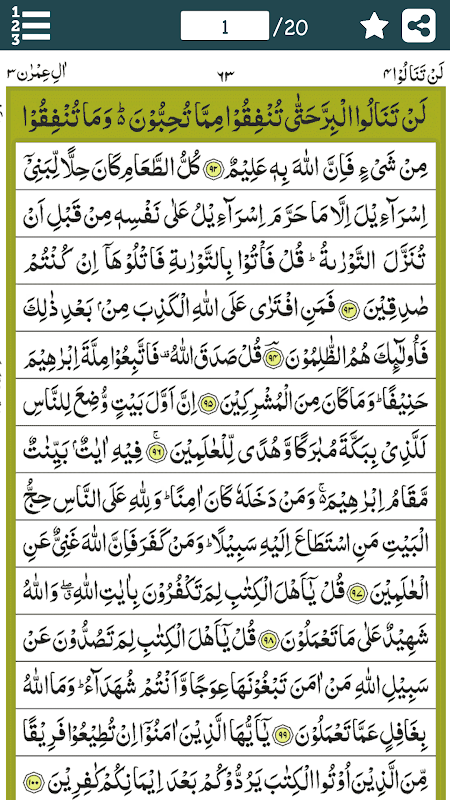 1
2
3
1
/20
اٰلِ عِمْرٰن ٣
٦٣
لَنْ تَنَالُوا ٤
لَنْ تَنَالُوا الْبِرَّ حَتّٰى تُنْفِقُوْا مِمَّا تُحِبُّوْنَ ؕ وَمَا تُنْفِقُوْا
مِنْ شَىْءٍ فَاِنَّ اللّٰهَ بِهٖ عَلِيْمٌ ۝۹۲ كُلُّ الطَّعَامِ كَانَ حِلًّا لِّبَنِىْۤ
اِسْرَآءِيْلَ اِلَّا مَا حَرَّمَ اِسْرَآءِيْلُ عَلٰى نَفْسِهٖ مِنْ قَبْلِ اَنْ
تُنَزَّلَ التَّوْرٰىةُ ؕ قُلْ فَاْتُوْا بِالتَّوْرٰىةِ فَاتْلُوْهَاۤ اِنْ كُنْتُمْ
صٰدِقِيْنَ ۝۹۳ فَمَنِ افْتَرٰى عَلَى اللّٰهِ الْكَذِبَ مِنْۢ بَعْدِ ذٰلِكَ
فَاُولٰٓئِكَ هُمُ الظّٰلِمُوْنَ ۝۹۴ قُلْ صَدَقَ اللّٰهُ ۟ فَاتَّبِعُوْا مِلَّةَ اِبْرٰهِيْمَ
حَنِيْفًا ؕ وَمَا كَانَ مِنَ الْمُشْرِكِيْنَ ۝۹۵ اِنَّ اَوَّلَ بَيْتٍ وُّضِعَ لِلنَّاسِ
لَلَّذِىْ بِبَكَّةَ مُبٰرَكًا وَّهُدًى لِّلْعٰلَمِيْنَ ۝۹۶ فِيْهِ اٰيٰتٌۢ بَيِّنٰتٌ
مَّقَامُ اِبْرٰهِيْمَ ۚ وَمَنْ دَخَلَهٗ كَانَ اٰمِنًا ؕ وَلِلّٰهِ عَلَى النَّاسِ حِجُّ
الْبَيْتِ مَنِ اسْتَطَاعَ اِلَيْهِ سَبِيْلًا ؕ وَمَنْ كَفَرَ فَاِنَّ اللّٰهَ غَنِىٌّ عَنِ
الْعٰلَمِيْنَ ۝۹۷ قُلْ يٰۤاَهْلَ الْكِتٰبِ لِمَ تَكْفُرُوْنَ بِاٰيٰتِ اللّٰهِ ۖ وَاللّٰهُ
شَهِيْدٌ عَلٰى مَا تَعْمَلُوْنَ ۝۹۸ قُلْ يٰۤاَهْلَ الْكِتٰبِ لِمَ تَصُدُّوْنَ عَنْ
سَبِيْلِ اللّٰهِ مَنْ اٰمَنَ تَبْغُوْنَهَا عِوَجًا وَّاَنْتُمْ شُهَدَآءُ ؕ وَمَا اللّٰهُ
بِغَافِلٍ عَمَّا تَعْمَلُوْنَ ۝۹۹ يٰۤاَيُّهَا الَّذِيْنَ اٰمَنُوْۤا اِنْ تُطِيْعُوْا فَرِيْقًا
مِّنَ الَّذِيْنَ اُوْتُوا الْكِتٰبَ يَرُدُّوْكُمْ بَعْدَ اِيْمَانِكُمْ كٰفِرِيْنَ ۝۱۰۰